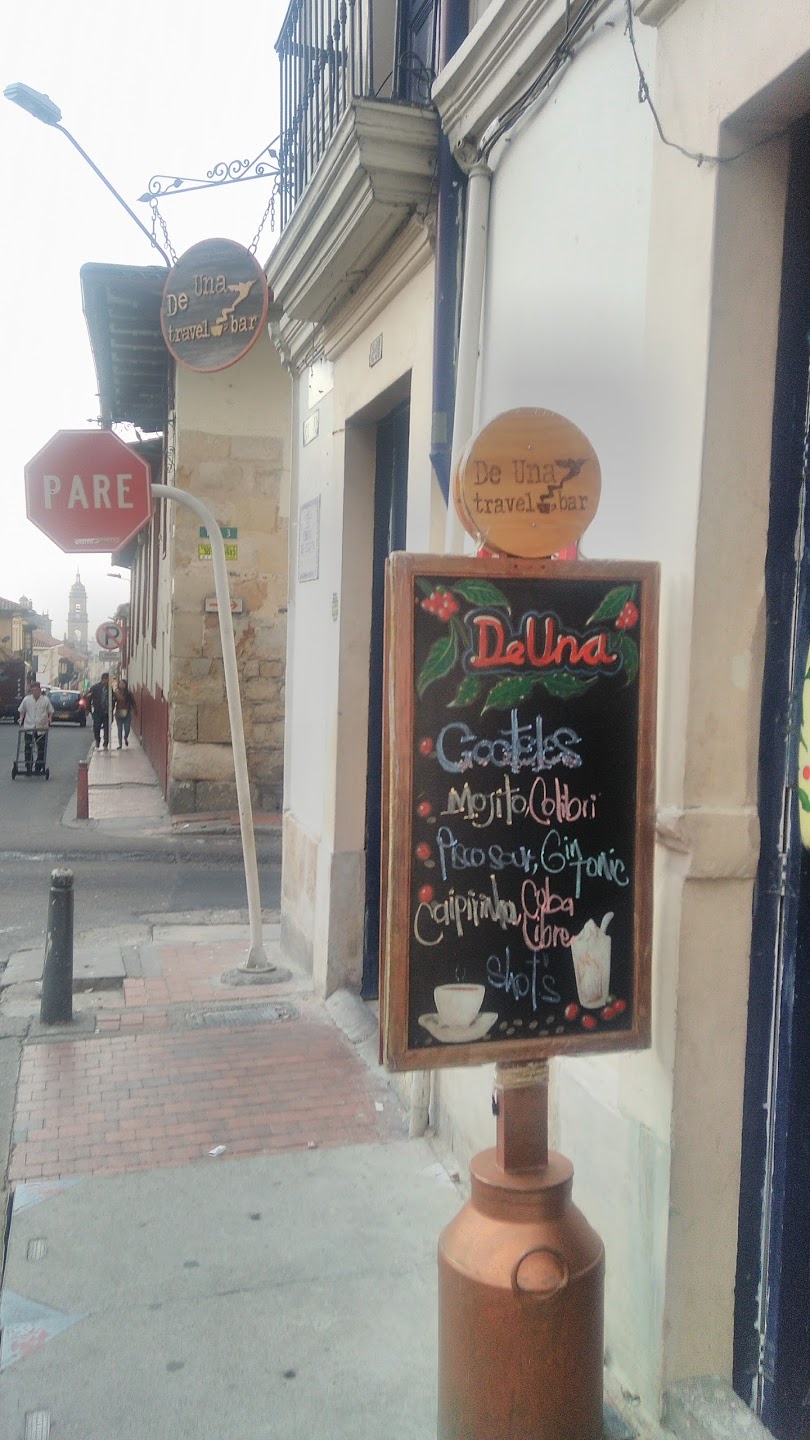 De Una
travel bar
PARE
De Una
travel bar
De Una
Cocteles
Mojito, Colibri
Pisco sour, Gin tonic
Caipirinha, Cuba Libre
shot's